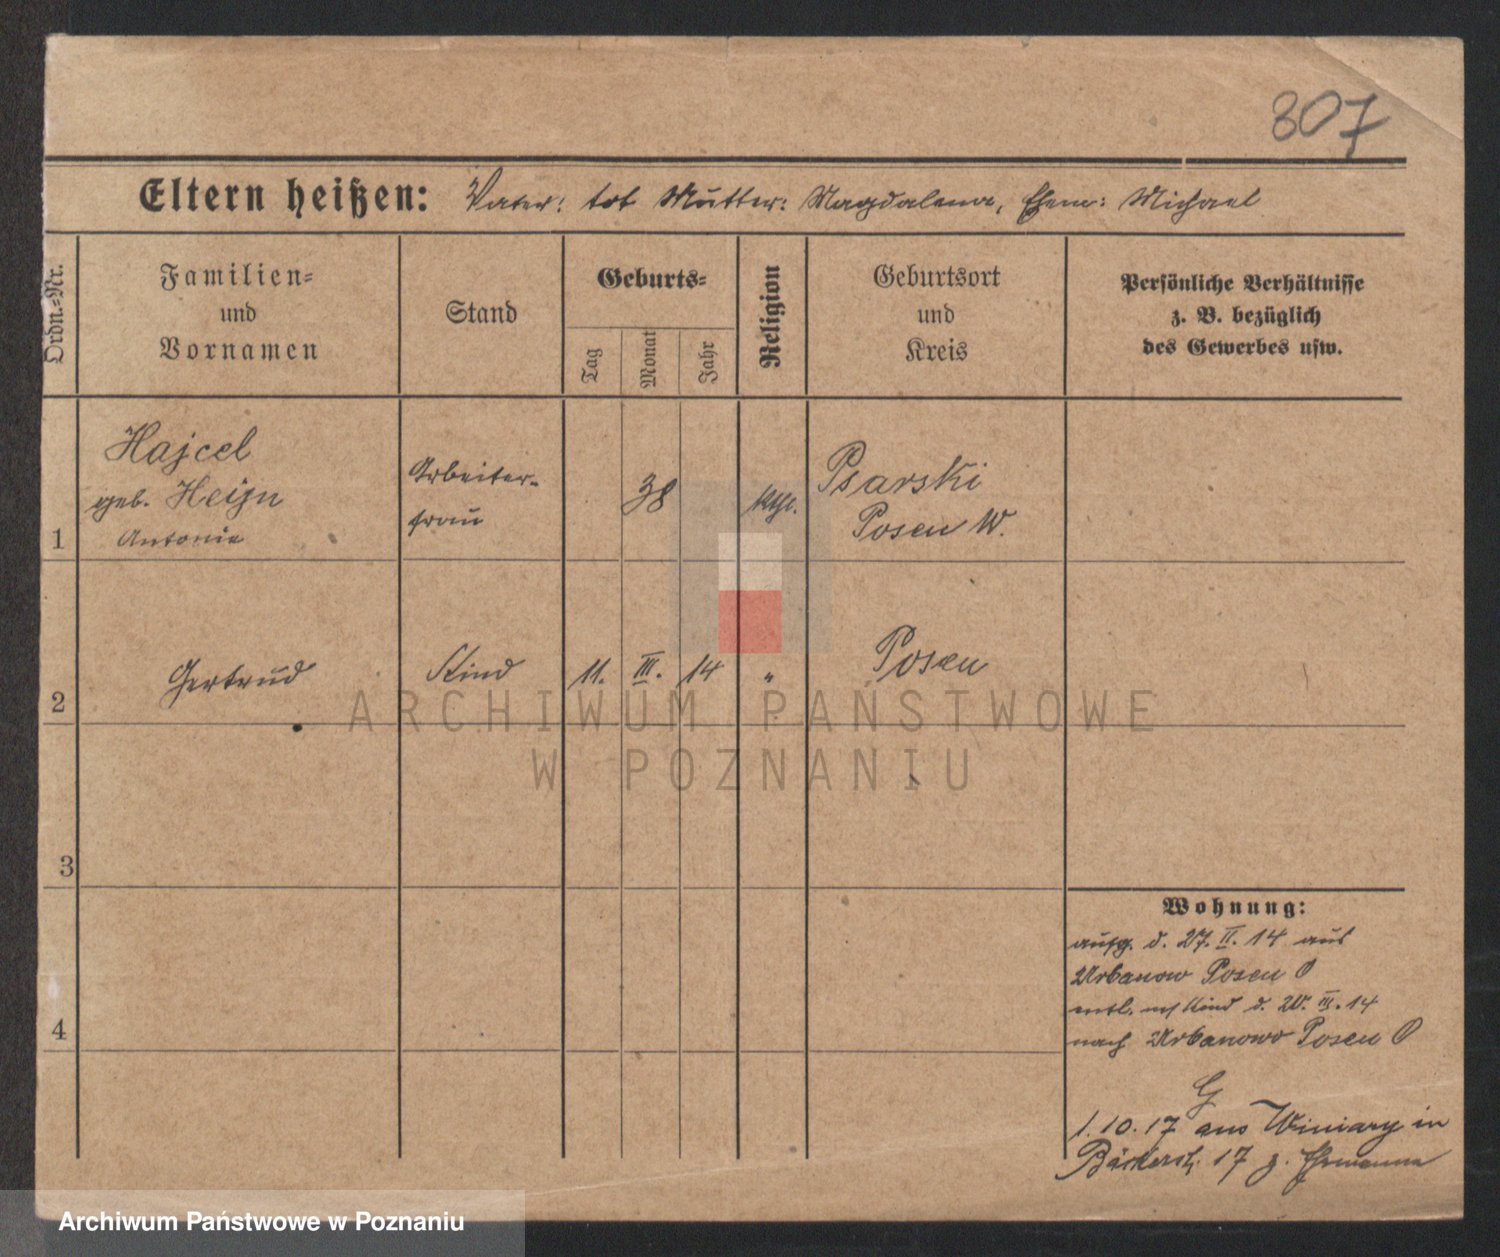 307
Eltern heißen: Vater: tot Mutter: Magdalena, Ehem: Michael
Ordn.-Nr.
Familien-
und
Vornamen
Stand
Geburts-
Tag
Monat
Jahr
Religion
Geburtsort
und
Kreis
Persönliche Verhältnisse
z. B. bezüglich
des Gewerbes usw.
1
Hajcel
geb.
Antonie
Arbeiter-
frau
38
kth.
Psarski
Posen W.
2
Gertrud
Kind
11. III. 14
"
Posen
ARCHIWUM PAŃSTWOWE
W POZNANIU
3
4
Wohnung:
aufg. d. 27. II. 14 aus
Urbanow Posen O
entl. m/Kind d. 20. III. 14
nach Urbanowo Posen O
G
1.10.17 aus Winiary in
Bäckerstr. 17 z. Ehemann
Archiwum Państwowe w Poznaniu